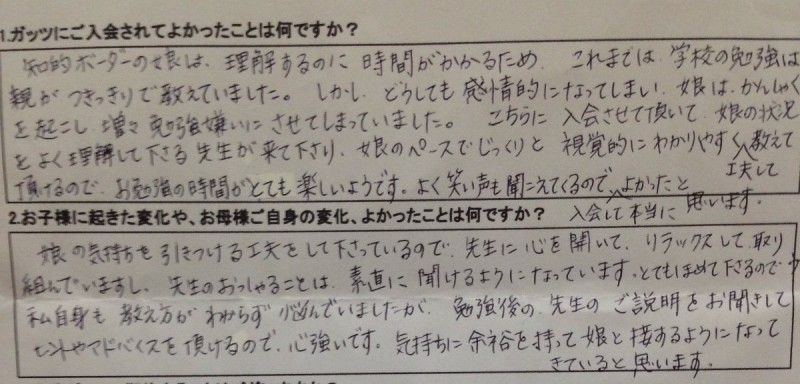 1.ガッツにご入会されてよかったことは何ですか?
知的ボーダーの娘は、理解するのに時間がかかるため、これまでは、学校の勉強は
親がつきっきりで教えていました。しかし、どうしても感情的になってしまい、娘は、かんしゃく
を起こし、増々勉強嫌いにさせてしまっていました。こちらに入会させて頂いて、娘の状況
をよく理解して下さる先生が来て下さり、娘のペースでじっくりと視覚的にわかりやすく工夫して教えて
頂けるので、お勉強の時間がとても楽しいようです。よく笑い声も聞こえてくるので、入会して本当によかったと
思います。
2.お子様に起きた変化や、お母様ご自身の変化、よかったことは何ですか?
娘の気持ちを引きつける工夫をして下さっているので、先生に心を開いて、リラックスして、取り
組んでいますし、先生のおっしゃることは、素直に聞けるようになっています。とてもほめて下さるので
私自身も教え方がわからず悩んでいましたが、勉強後の先生のご説明をお聞きして
ヒントやアドバイスを頂けるので、心強いです。気持ちに余裕を持って娘と接するようになって
きていると思います。